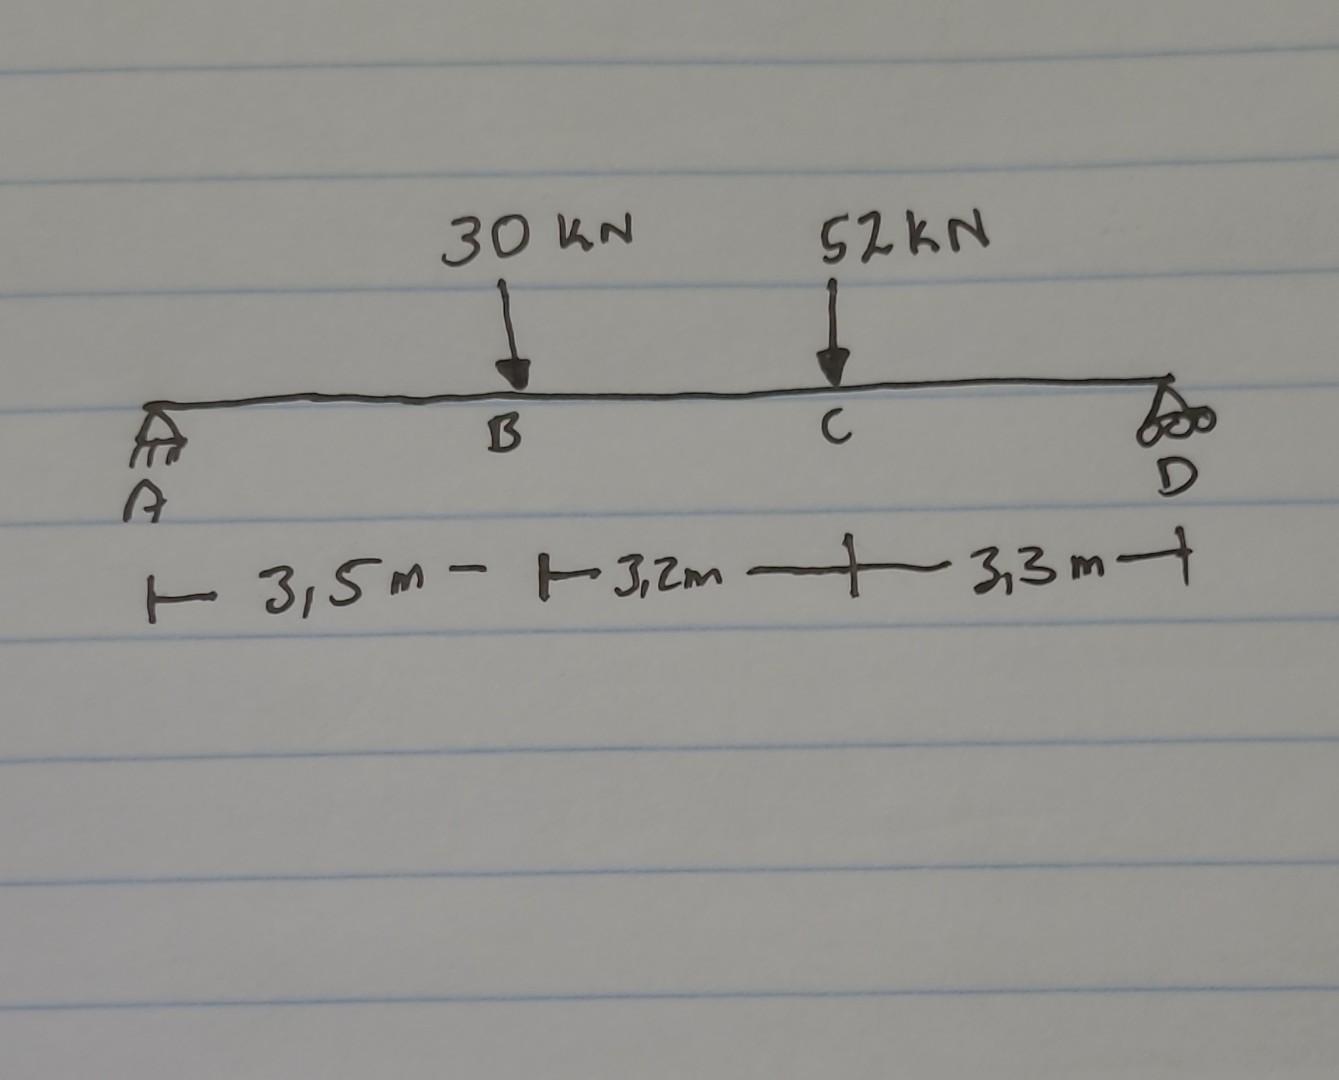 30 KN 52KN
B C
A D
3,5m 3,2m 3,3m